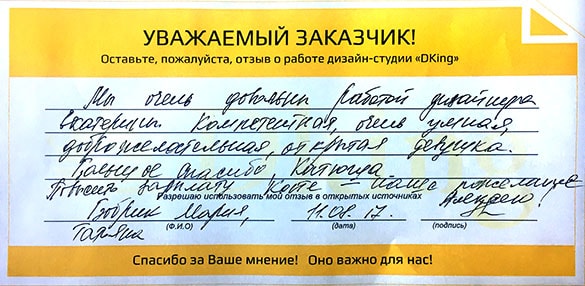 УВАЖАЕМЫЙ ЗАКАЗЧИК!
Оставьте, пожалуйста, отзыв о работе дизайн-студии «DKing»
Мы очень довольны работой дизайнера
Екатерины. Компетентная, очень умная,
доброжелательная, открытая девушка.
Большое спасибо, Катюша
Повысить зарплату Кате – наше пожелание
Разрешаю использовать мой отзыв в открытых источниках
Бобрик Мария, 11.08.17.
(Ф.И.О) (дата) (подпись)
Спасибо за Ваше мнение! Оно важно для нас!